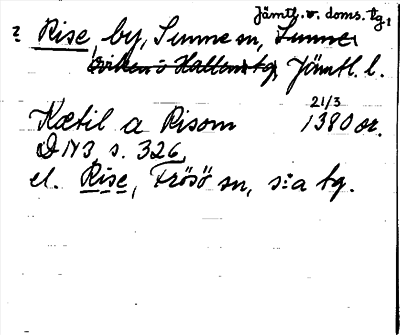 Jämtl. v. doms. tg.
? Rise by, Sunne sn, Sunne
viken i Hallens tg, Jämtl. l.
21/3
Kætil a Risom 1380 or.
DN 3, s. 326,
el. Rise, Frösö sn, s:a tg.